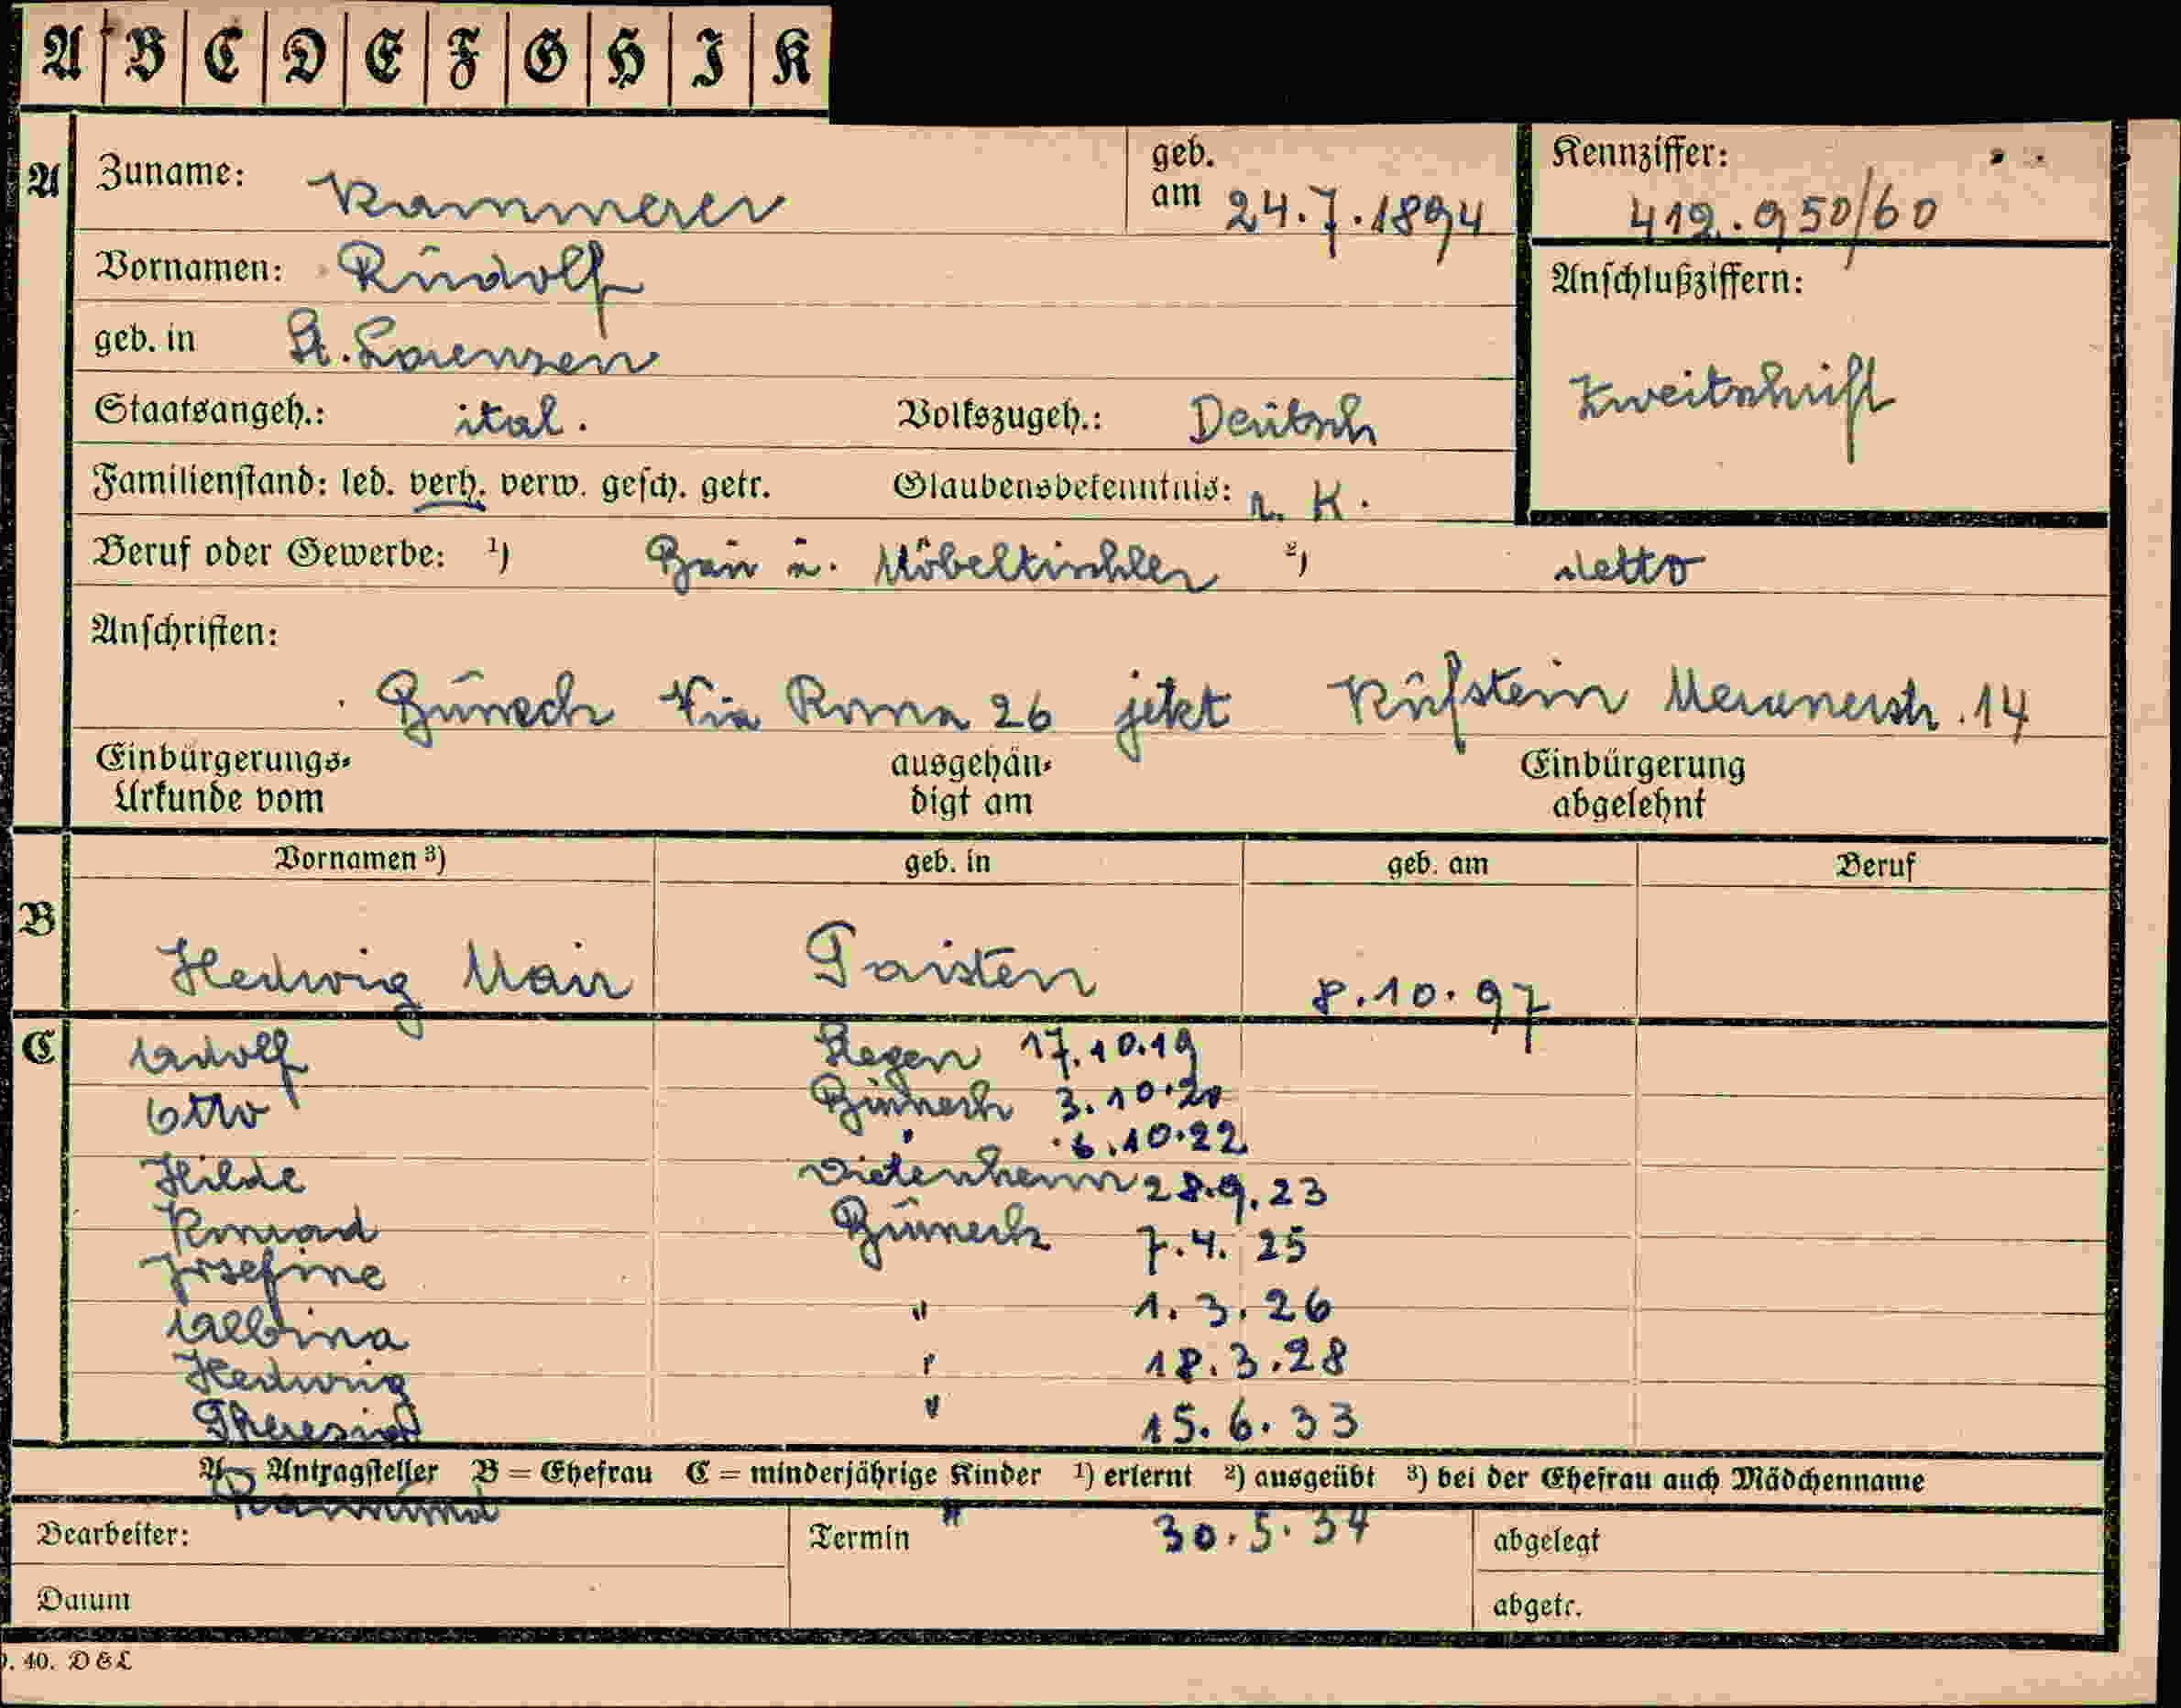 A B C D E F G H I K
A
Zuname: Kammerer
geb. am 24.7.1894
Kennziffer: 412.950/60
Vornamen: Rudolf
Anschlußziffern:
geb. in St. Lorenzen
Zweitschrift
Staatsangeh.: ital. Volkszugeh.: Deutsch
Familienstand: led. verh. verw. gesch. getr. Glaubensbekenntnis: r. K.
Beruf oder Gewerbe: ¹) Bau u. Möbeltischler ²) detto
Anschriften:
Via Roma 26 jetzt Kufstein Meranerstr. 14
Einbürgerungs- ausgehän- Einbürgerung
Urkunde vom digt am abgelehnt
Vornamen ³) geb. in geb. am Beruf
B
Hedwig Mair Taisten 8.10.97
C
Adolf 17.10.19
Otto 3.10.20
6.10.22
Hilde Dietenheim 28.9.23
Konrad 7.4.25
Josefine
" 1.3.26
Albina
Hedwig " 18.3.28
Theresia " 15.6.33
A = Antragsteller B = Ehefrau C = minderjährige Kinder ¹) erlernt ²) ausgeübt ³) bei der Ehefrau auch Mädchenname
Raimund " 30.5.34
Bearbeiter: Termin abgelegt
Datum abgetr.
40. D & L